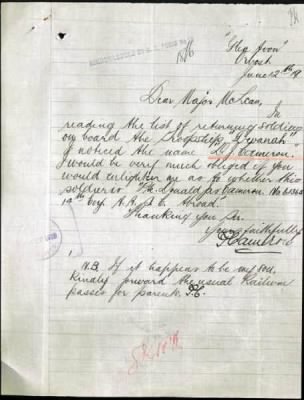 "Glen Avon"
Orbost
June 12th 19
Dear Major McLean,
In
reading the list of returning soldiers
on board the Troopship "Dewanah"
I noticed the name "D. J. Cameron."
Would be very much obliged if you
would enlighten me as to whether this
soldier is "Pte Donald Jas Cameron. No
19th Coy. A.A.S.C. Abroad."
Thanking you Sir.
Yours faithfully
Cameron
N.B. If it happens to be my son,
Kindly forward the usual Railway
passes for parents.